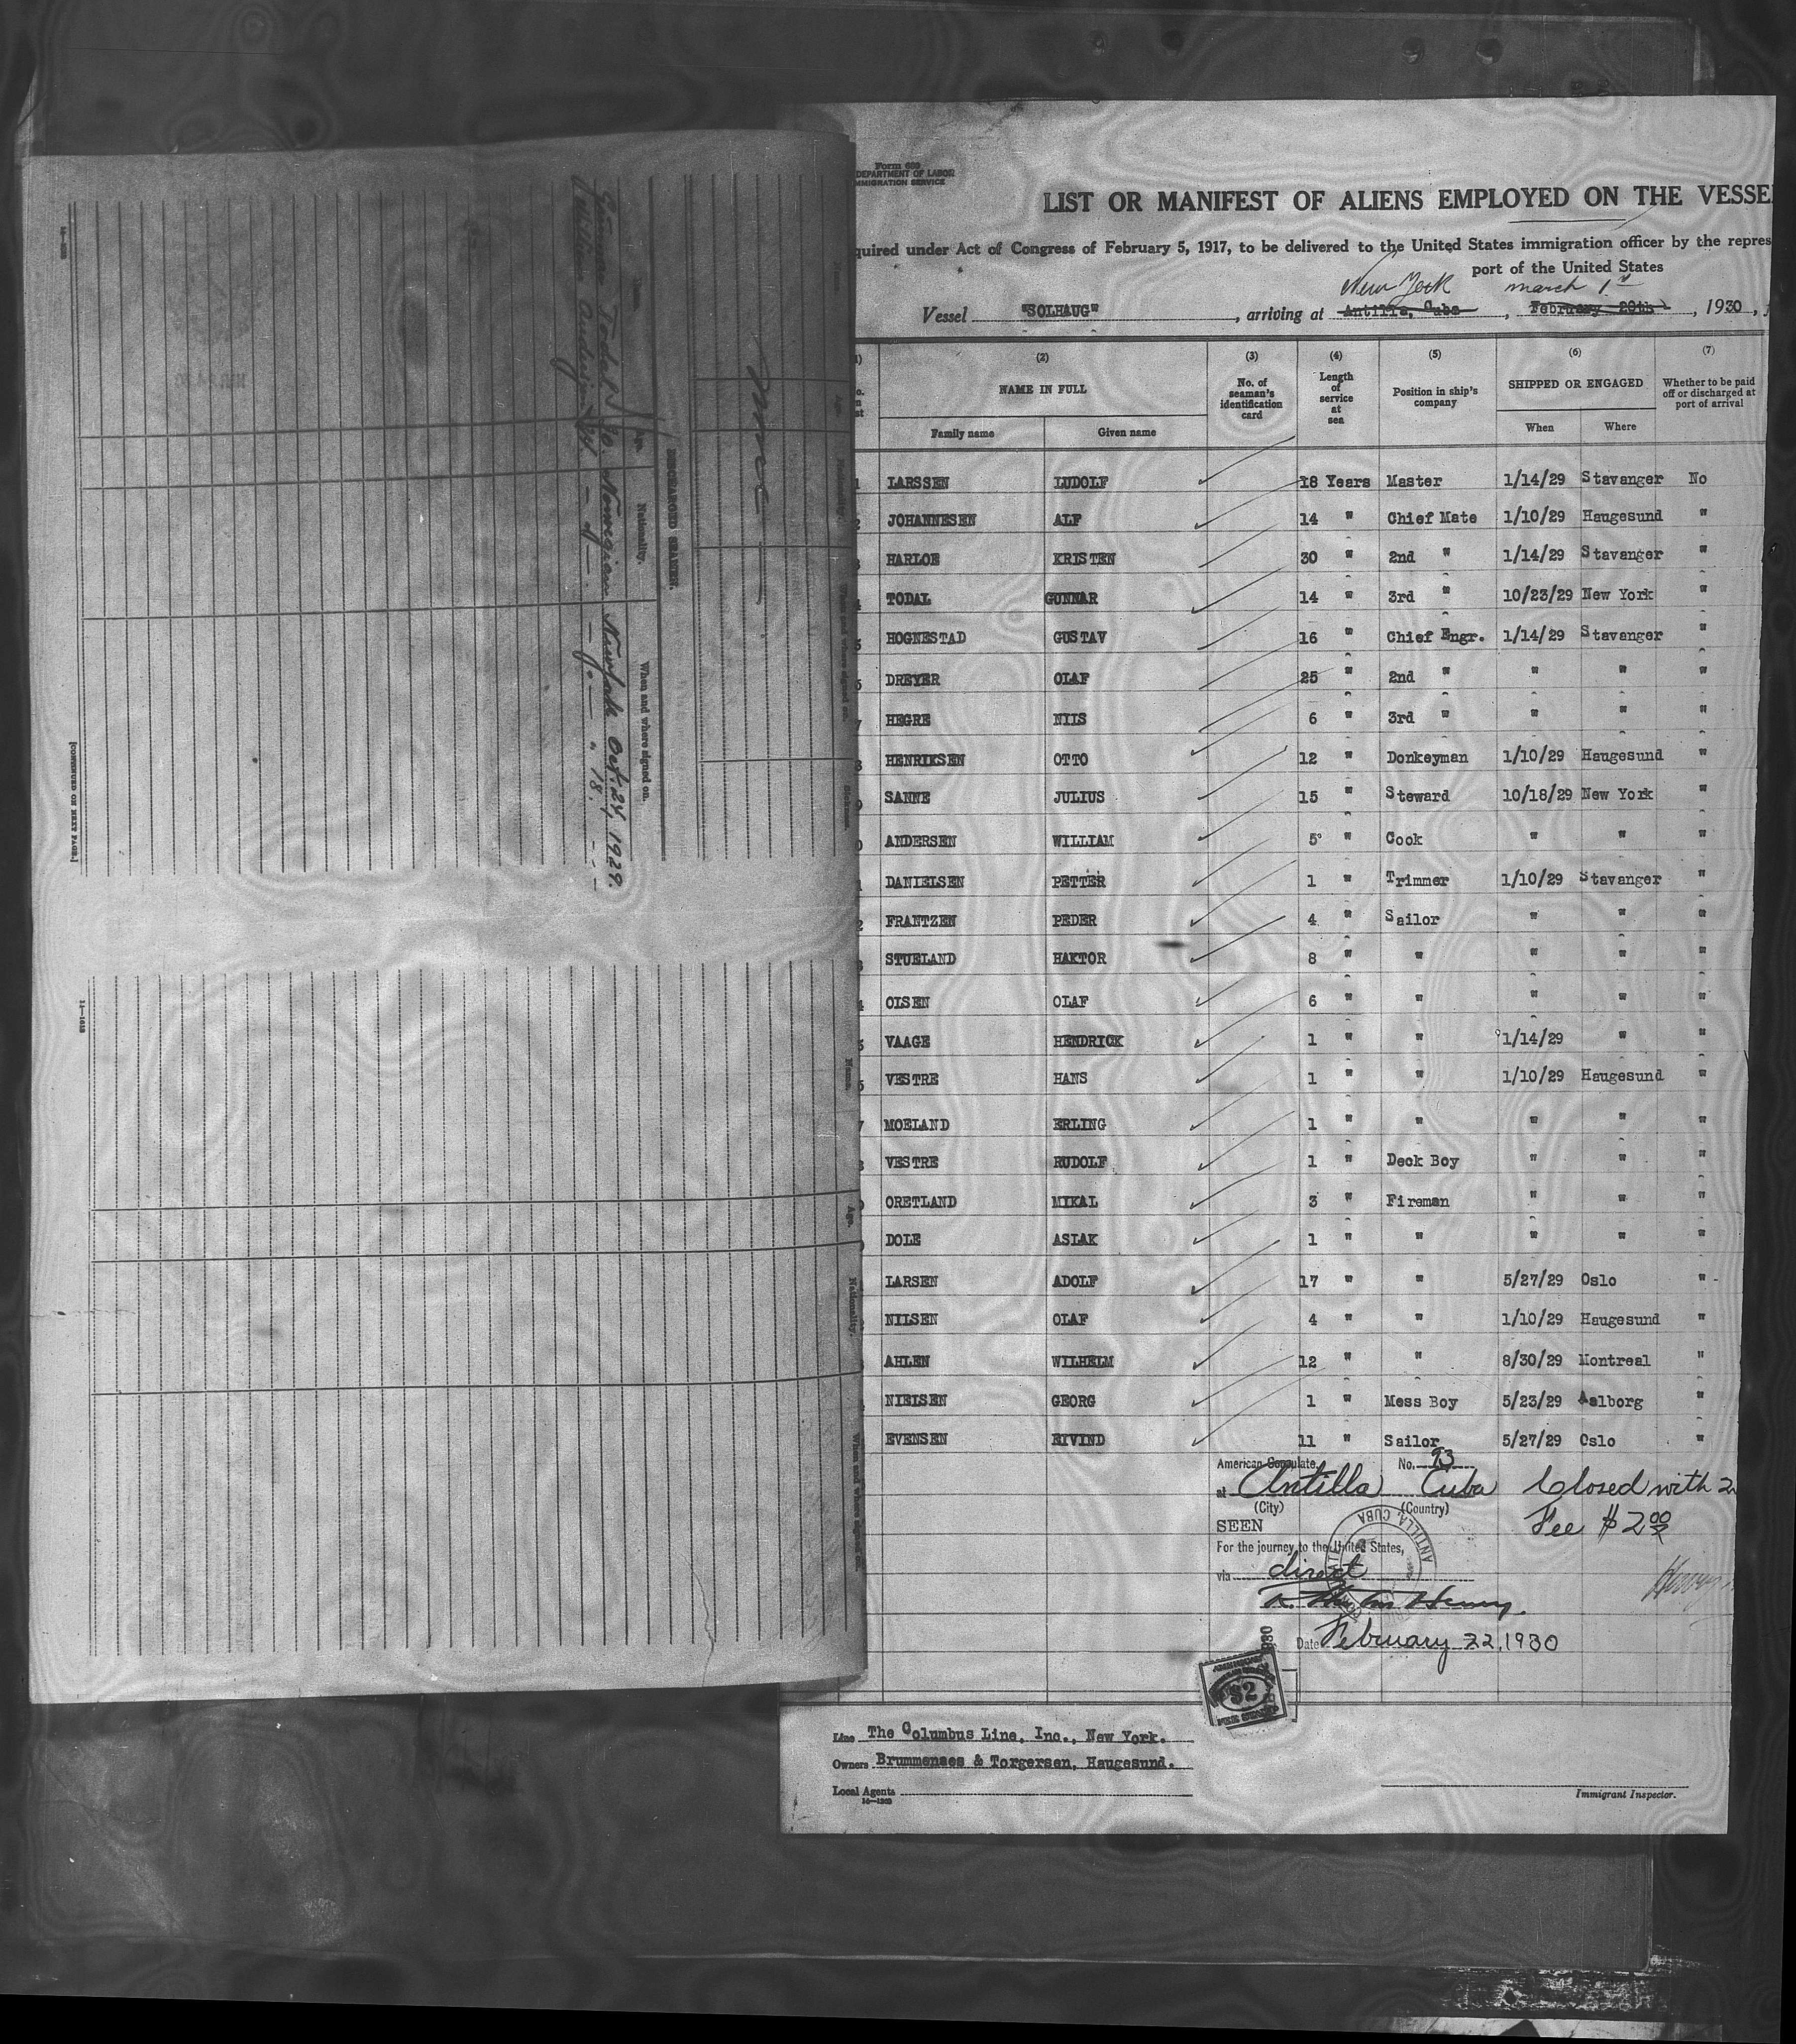 Form 680
DEPARTMENT OF LABOR
IMMIGRATION SERVICE
LIST OR MANIFEST OF ALIENS EMPLOYED ON THE VESSE
quired under Act of Congress of February 5, 1917, to be delivered to the United States immigration officer by the repres
port of the United States
New York march 1st
Vessel "SOLHAUG", arriving at Antilla, Cuba, February 20th, 1930,
(2) (3) (4) (5) (6) (7)
NAME IN FULL No. of seaman's identification card Length of service at sea Position in ship's company SHIPPED OR ENGAGED Whether to be paid off or discharged at port of arrival
Family name Given name When Where
1 LARSSEN LUDOLF 18 Years Master 1/14/29 Stavanger No
2 JOHANNESEN ALF 14 " Chief Mate 1/10/29 Haugesund "
HARLOE KRISTEN 30 " 2nd " 1/14/29 Stavanger "
TODAL GUNNAR 14 " 3rd " 10/23/29 New York "
5 HOGNESTAD GUSTAV 16 " Chief Engr. 1/14/29 Stavanger "
DREYER OLAF 25 " 2nd " " " "
7 HEGRE NIIS 6 " 3rd " " " "
HENRIKSEN OTTO 12 " Donkeyman 1/10/29 Haugesund "
SANNE JULIUS 15 " Steward 10/18/29 New York "
ANDERSEN WILLIAM 5 " Cook " " "
DANIELSEN PETTER 1 " Trimmer 1/10/29 Stavanger "
2 FRANTZEN PEDER 4 " Sailor " " "
STUELAND HAKTOR 8 " " " " "
OISEN OLAF 6 " " " " "
VAAGE HENDRICK 1 " " 1/14/29 " "
VESTRE HANS 1 " " 1/10/29 Haugesund "
7 MOELAND ERLING 1 " " " " "
VESTRE RUDOLF 1 " Deck Boy " " "
ORETLAND MIKAL 3 " Fireman " " "
DOLE ASLAK 1 " " " " "
LARSEN ADOLF 17 " " 5/27/29 Oslo "
NILSEN OLAF 4 " " 1/10/29 Haugesund "
AHLEN WILHELM 12 " " 8/30/29 Montreal "
NIELSEN GEORG 1 " Mess Boy 5/23/29 Aalborg "
EVENSEN EIVIND 11 " Sailor 5/27/29 Oslo "
American Consulate, No. 93
at Antilla Cuba Closed with 2
(City) (Country) Fee $2.00
SEEN
ANTILLA, CUBA
For the journey to the United States,
via direct
Henry.
Date February 22, 1930
$2
FEE STAMP
Line The Columbus Line, Inc., New York.
Owners Brummenaes & Torgersen, Haugesund.
Local Agents
Immigrant Inspector.
DISCHARGED SEAMEN.
Name. Age. Nationality. When and where signed on.
Gunnar Todal 30. Norwegian Newyork Oct. 24, 1929.
[CONTINUED ON NEXT PAGE.]
Name. Age. Nationality. When and where signed on.